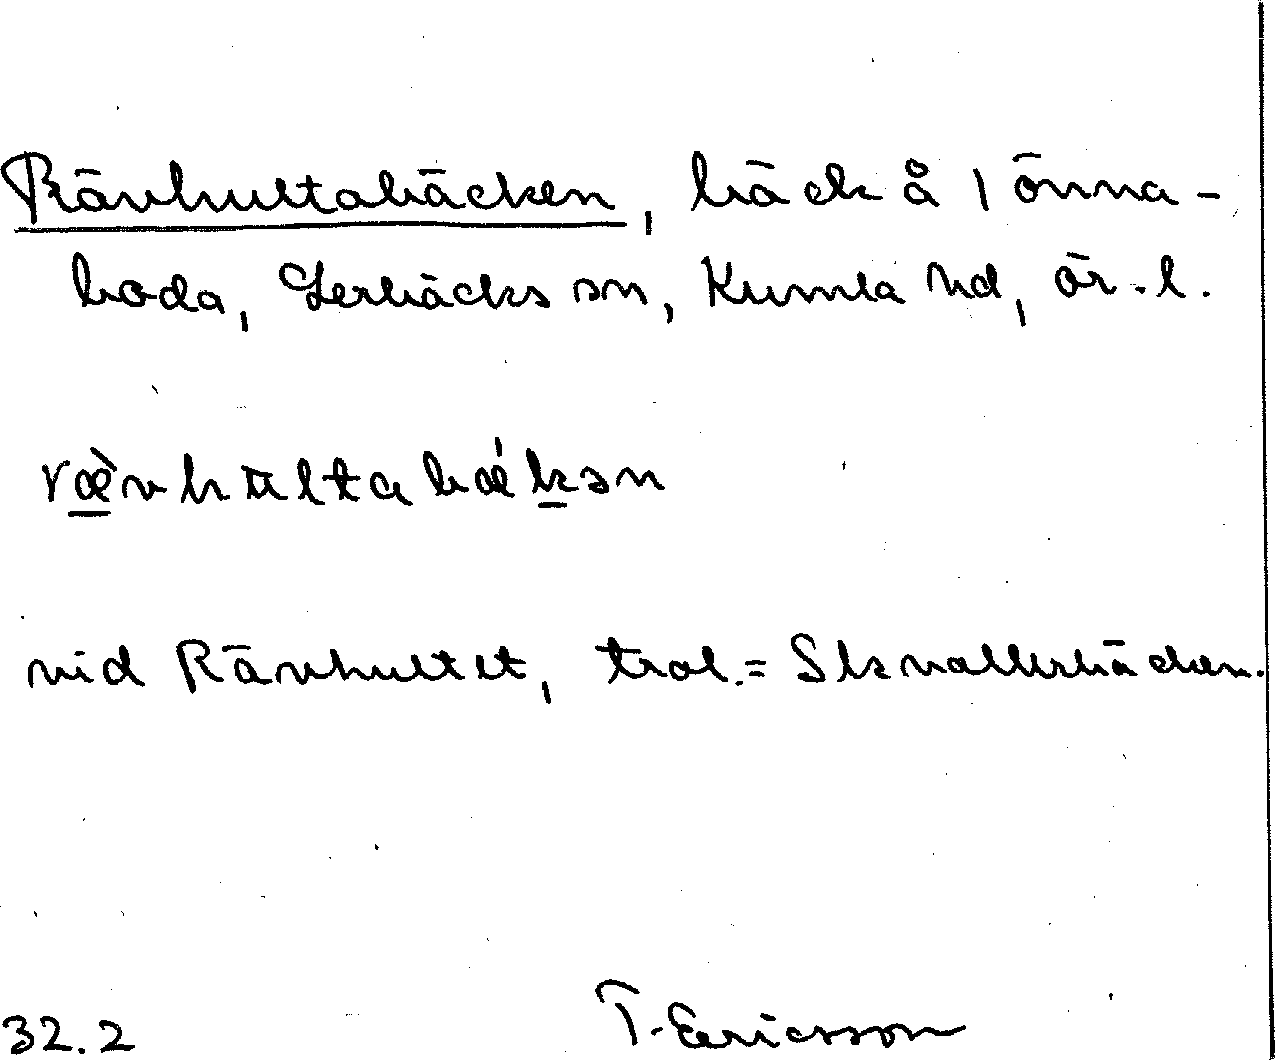 Rävhultabäcken, bäck å 1 önna-
boda, Lerbäcks sn, Kumla hd, ör. l.
ræ̀vhultabǽkən
vid Rävhultet, trol. = Skvallerbäcken.
32.2 T. Ericsson